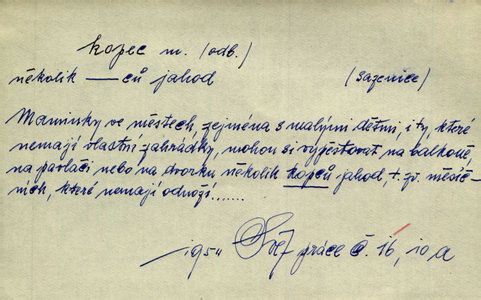 kopec m. (odb.)
několik —ců jahod (sazenice)
Maminky ve městech, zejména s malými dětmi, i ty, které
nemají vlastní zahrádky, mohou si vypěstovat na balkoně,
na pavlači nebo na dvorku několik kopců jahod, t. zv. měsíč-
ních, které nemají odnoží......
1954 práce č. 16, 10 a